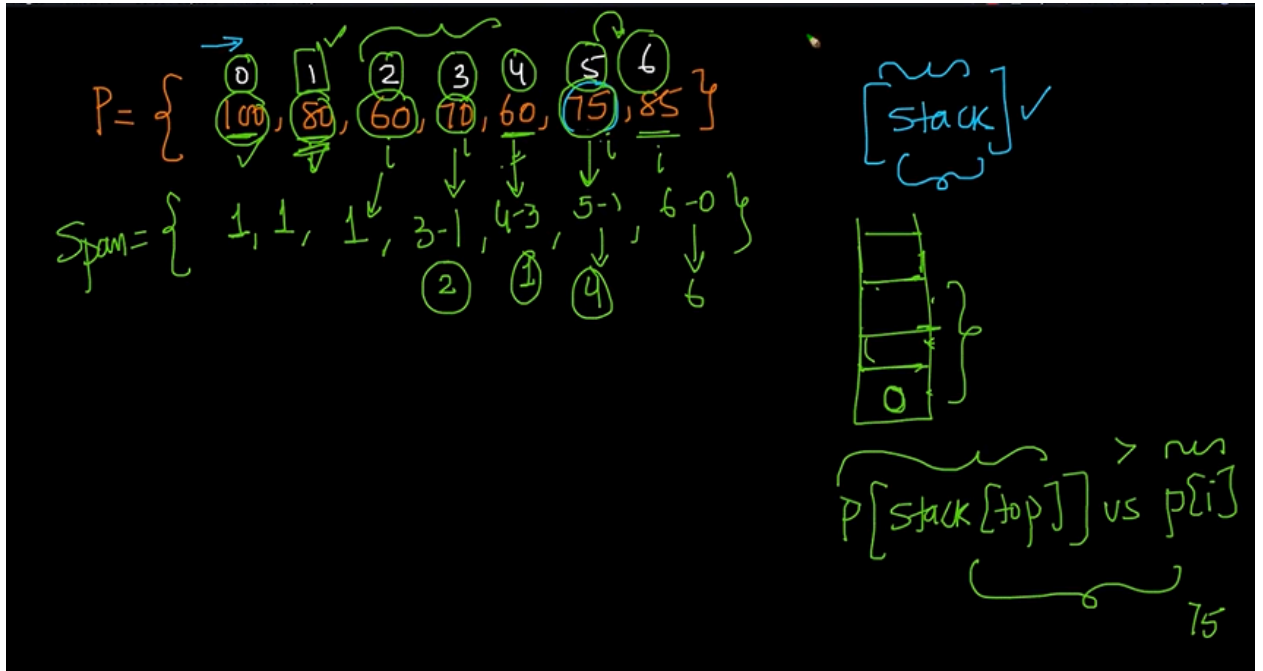 0 1 2 3 4 5 6
P = { 100, 80, 60, 70, 60, 75, 85 }
i i i i
Span = { 1, 1, 1, 3-1, 4-3, 5-1, 6-0 }
2 1 4 6
[stack]
0
>
P[stack[top]] vs p[i]
75